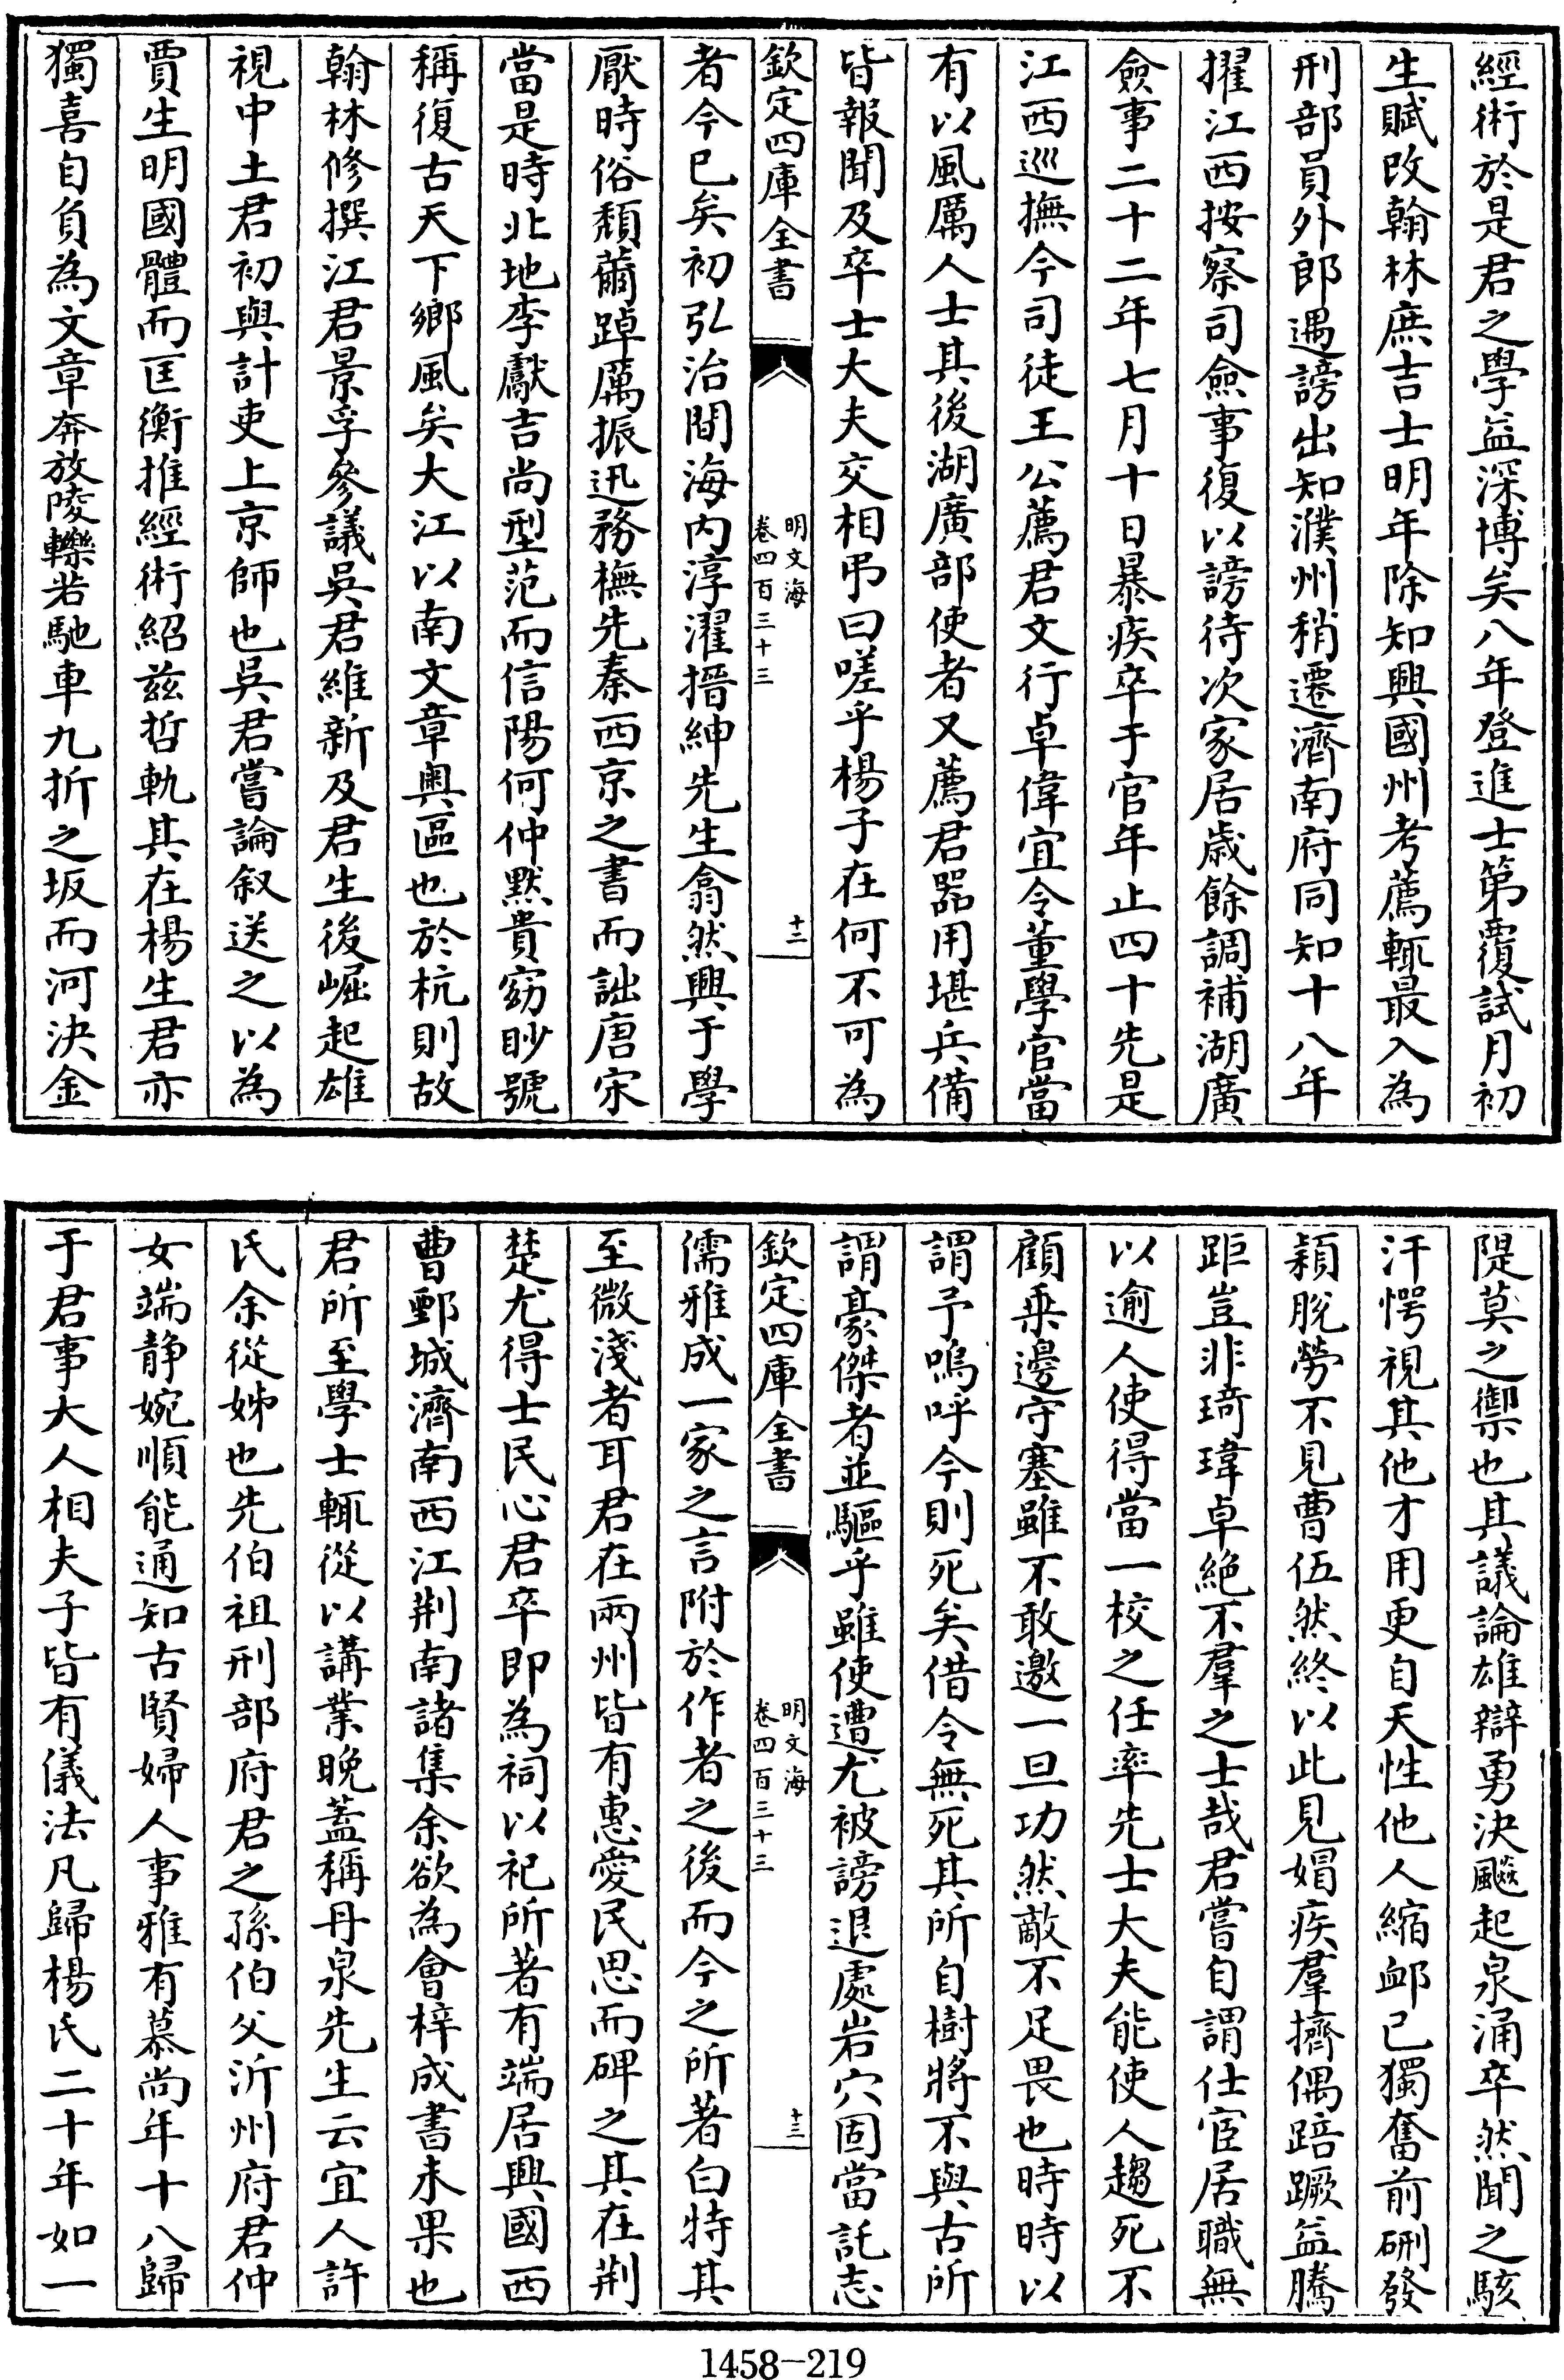 經術於是君之學益深博矣八年登進士第覆試月初
生賦改翰林庶吉士明年除知興國州考薦輒最入為
刑部員外郎遇謗出知濮州稍遷濟南府同知十八年
擢江西按察司僉事復以謗待次家居歲餘調補湖廣
僉事二十二年七月十日暴疾卒于官年止四十先是
江西巡撫今司徒王公薦君文行卓偉宜令董學官當
有以風厲人士其後湖廣部使者又薦君器用堪兵備
皆報聞及卒士大夫交相弔曰嗟乎楊子在何不可為
欽定四庫全書
明文海
卷四百三十三
十二
者今已矣初弘治間海內淳濯搢紳先生翕然興于學
厭時俗頹薾踔厲振迅務橅先秦西京之書而詘唐宋
當是時北地李獻吉尚型范而信陽何仲默貴窈眇號
稱復古天下鄉風矣大江以南文章奧區也於杭則故
翰林修撰江君景孚參議吳君維新及君生後崛起雄
視中土君初與計吏上京師也吳君嘗論叙送之以為
賈生明國體而匡衡推經術紹茲哲軌其在楊生君亦
獨喜自負為文章奔放陵轢若馳車九折之坂而河決金
隄莫之禦也其議論雄辯勇決飈起泉涌卒然聞之駭
汗愕視其他才用更自天性他人縮衂已獨奮前硎發
穎脫勞不見曹伍然終以此見媢疾羣擠偶踣蹶益騰
距豈非琦瑋卓絶不羣之士哉君嘗自謂仕宦居職無
以逾人使得當一校之任率先士大夫能使人趨死不
顧乘邊守塞雖不敢邀一旦功然敵不足畏也時時以
謂予嗚呼今則死矣借令無死其所自樹將不與古所
謂豪傑者並驅乎雖使遭尤被謗退處岩穴固當託志
欽定四庫全書
明文海
卷四百三十三
十三
儒雅成一家之言附於作者之後而今之所著白特其
至微淺者耳君在兩州皆有惠愛民思而碑之其在荆
楚尤得士民心君卒即為祠以祀所著有端居興國西
曹鄄城濟南西江荆南諸集余欲為會梓成書未果也
君所至學士輒從以講業晚蓋稱丹泉先生云宜人許
氏余從姊也先伯祖刑部府君之孫伯父沂州府君仲
女端静婉順能通知古賢婦人事雅有慕尚年十八歸
于君事大人相夫子皆有儀法凡歸楊氏二十年如一
1458-219